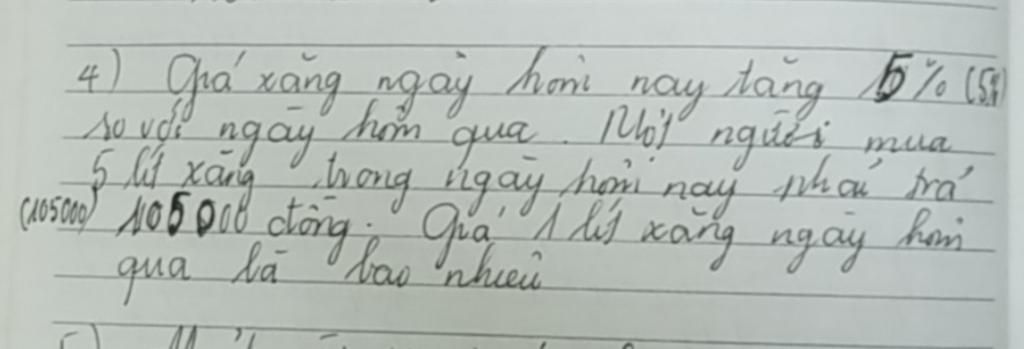 4) Giá xăng ngày hôm nay tăng 5% (5%)
so với ngày hôm qua. Một người mua
5 lít xăng trong ngày hôm nay phải trả
(105000) 105000 đồng. Giá 1 lít xăng ngày hôm
qua là bao nhiêu
5)